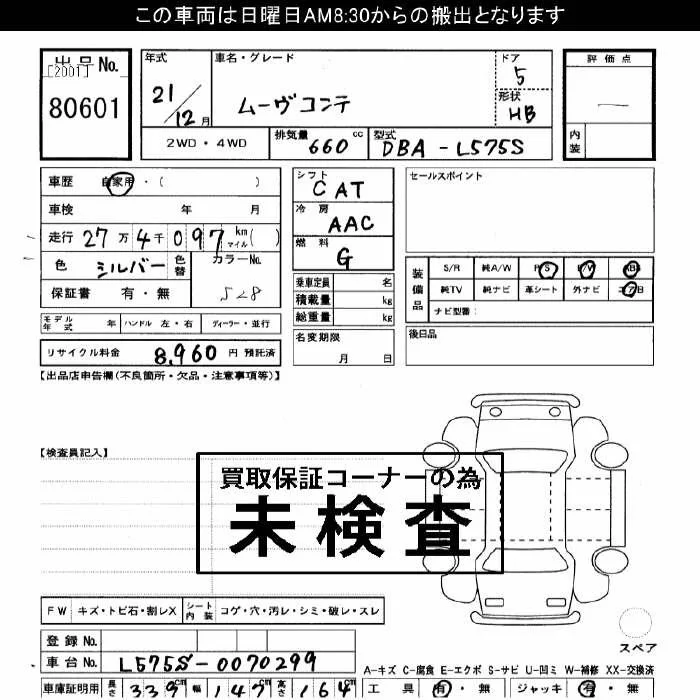 この車両は日曜日AM8:30からの搬出となります
出品No.
[2001]
80601
年式
21/12月
車名・グレード
ムーヴコンテ
ドア
5
形状
HB
評価点
―
内装
2WD・4WD
排気量
660 cc
型式
DBA-L575S
車歴 自家用・( )
車検 年 月
走行 27万4千097 km マイル ( )
色 シルバー 色替 カラーNo.
保証書 有・無 S28
モデル年式 年 ハンドル 左・右 ディーラー・並行
リサイクル料金 8,960 円 預託済
シフト
CAT
冷房
AAC
燃料
G
乗車定員 名
積載量 kg
総重量 kg
名変期限
月 日
セールスポイント
装備品
S/R 純A/W P/S P/W ABS
純TV 純ナビ 革シート 外ナビ エアB
ナビ型番:
後日品
【出品店申告欄(不良箇所・欠品・注意事項等)】
【検査員記入】
買取保証コーナーの為
未検査
FW キズ・トビ石・割レX シート内装 コゲ・穴・汚レ・シミ・破レ・スレ
スペア
登録No.
車台No. L575S-0070299
A-キズ C-腐食 E-エクボ S-サビ U-凹ミ W-補修 XX-交換済
車庫証明用 長さ 339cm 幅 147cm 高さ 164cm
工具 有・無 ジャッキ 有・無